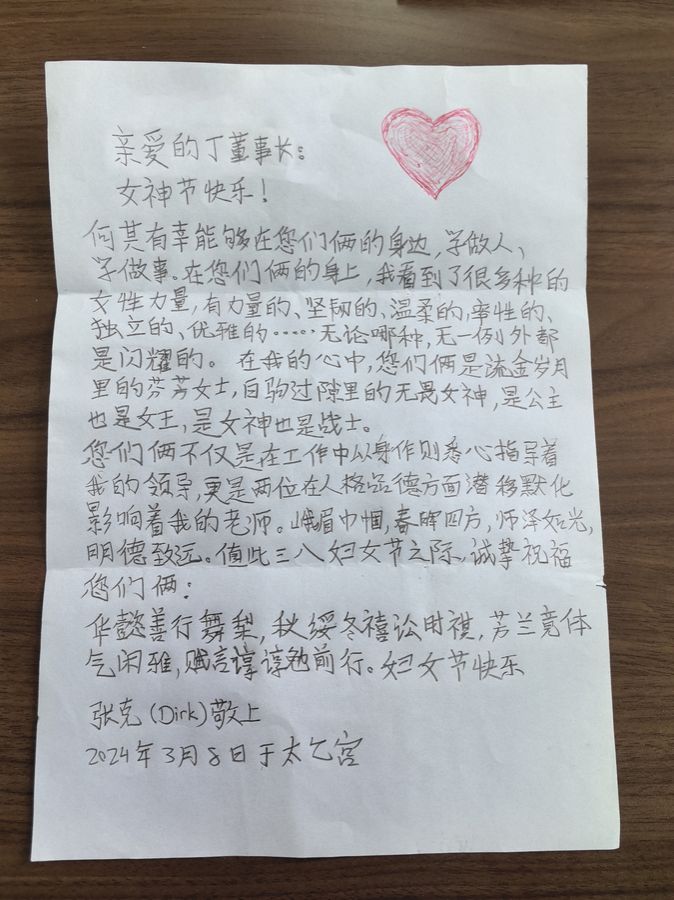 亲爱的丁董事长：
女神节快乐！
何其有幸能够在您们俩的身边，学做人、
学做事。在您们俩的身上，我看到了很多种的
女性力量，有力量的、坚韧的、温柔的、率性的、
独立的、优雅的……无论哪种，无一例外都
是闪耀的。在我的心中，您们俩是流金岁月
里的芬芳女士，白驹过隙里的无畏女神，是公主
也是女王，是女神也是战士。
您们俩不仅是在工作中以身作则悉心指导着
我的领导，更是两位在人格品德方面潜移默化
影响着我的老师。峨嵋巾帼，春晖四方，师泽如光，
明德致远。值此三八妇女节之际，诚挚祝福
您们俩：
华懿善行舞梨，秋绥冬禧讼时祺，芳兰竟体
气闲雅，赋言谆谆勉前行。妇女节快乐
张克（Dirk）敬上
2024年3月8日于太乙宫